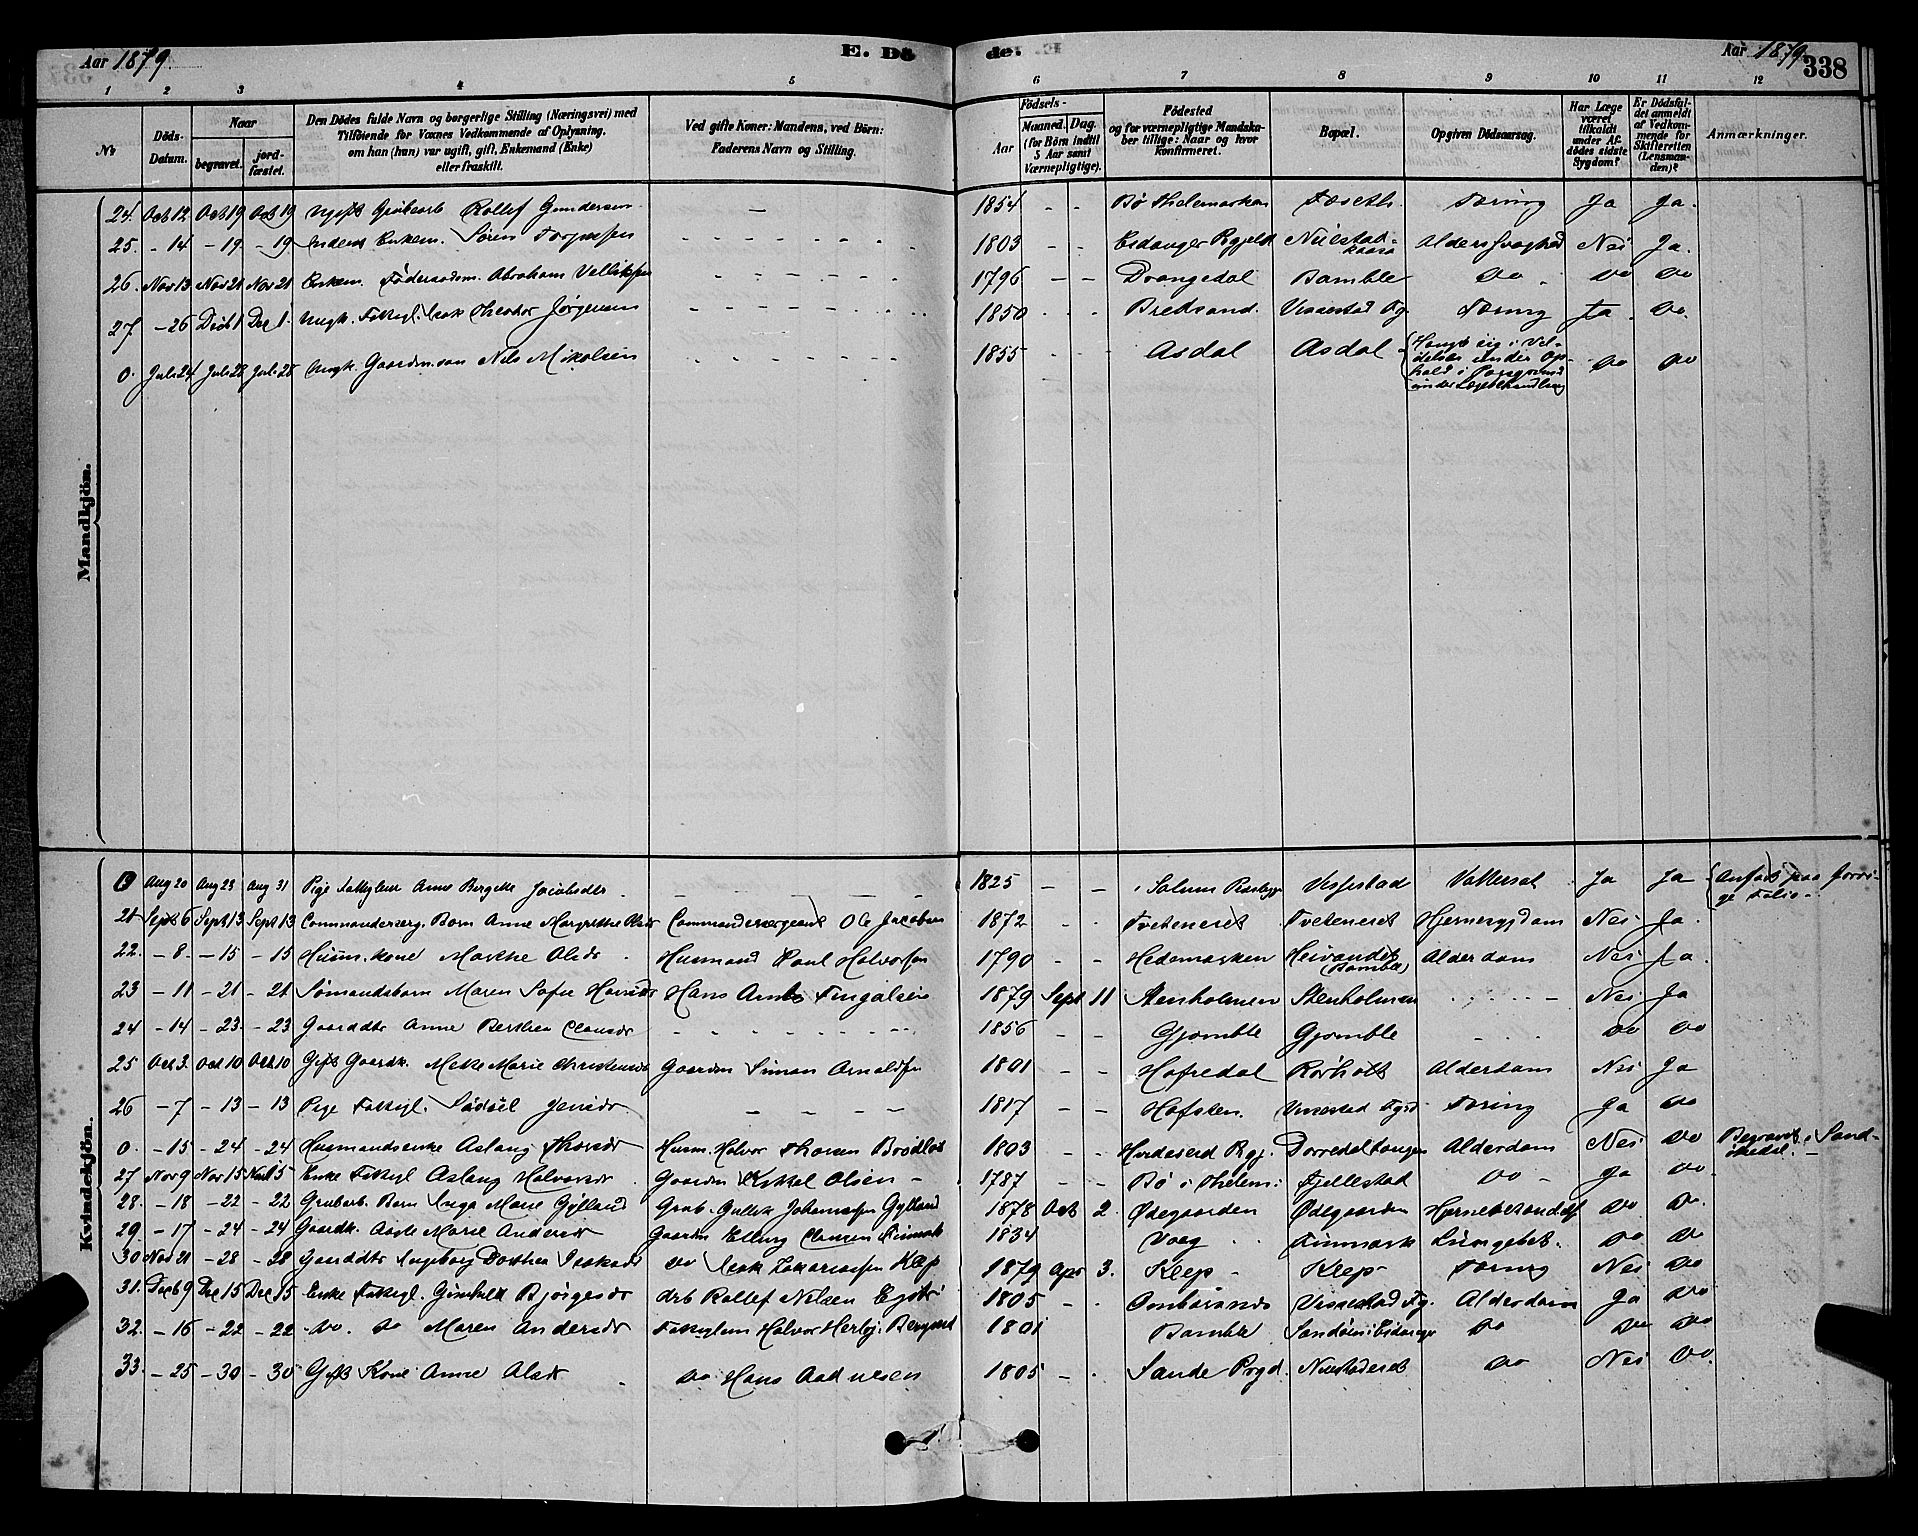 Aar 1879.
E. Dö
de.
Aar 1879.
338
1 2 3 4 5 6 7 8 9 10 11 12
No
Döds-Datum.
Naar
begravet.
jord-fæstet.
Den Dödes fulde Navn og borgerlige Stilling (Næringsvei) med
Tilföiende for Voxnes Vedkommende af Oplysning,
om han (hun) var ugift, gift, Enkemand (Enke)
eller fraskilt.
Ved gifte Koner: Mandens, ved Börn:
Faderens Navn og Stilling.
Födsels-
Aar
Maaned.
Dag.
(for Börn indtil
5 Aar samt
Værnepligtige).
Födested
og for værnepligtige Mandska-
ber tillige: Naar og hvor
konfirmeret.
Bopæl.
Opgiven Dödsaarsag.
Har Læge
været
tilkaldt
under Af-
dödes sidste
Sygdom?
Er Dödsfal-
det anmeldt
af Vedkom-
mende for
Skifteretten
(Lensman-
den)?
Anmærkninger.
Mandkjön.
24. Oct 12 Oct 19 Oct 19 Ugift Grubearb Rollef Gundersen — 1854 - - Bö Thelemarken Foseth Tæring Ja Ja.
25. - 14 - 19. - 19 Enkem. Sören 1803 - - Eidanger Prgjeld Alderssvaghed Nei Ja.
26. Nov 13 Nov 21 Nov 21 Enkem. Föderaadsm. Abraham 1796 - - Drangedal Bamble Do Do Do
27 - 26 Decb 1 Dec 1. Ungk. Fattigl. Isak Theodor Jörgensen 1850 - - Bredsand. Vissestad Fg Tæring Ja. Do.
0. Juli 24 Juli 28 Juli 28 Ungk. Gaardm.sön Nils Mikelsen 1855 Asdal Asdal Hængt sig i Vel-
under Op-
hold i Porsgrund
under Lægebehandling Do Do
Kvindekjön.
Aug 20 Aug 23 Aug 31 Pige Fattiglem Anne Bergette Jacobsdtr 1825 - - i Solum Vissestad Vattersot Ja Ja Anfört paa forri-
ge Folio.
21 Sept 6 Sept 13 Sept 13 Commandersergt. Barn Anne Margrethe Olsdtr Commandersergeant Ole Jacobsen 1872 - - Tveteneret Tveteneret Hjernesygdom Nei Ja.
22. - 8. - 15 - 15 Husm. kone Marthe Olsdr Husmand Poul Halvorsen 1790 - - Hedemarken Heivandet
(Bamble) Alderdom Nei Ja.
23 - 11 - 21 - 21 Sömandsbarn Maren Sofie Hansdr Hans Fingalsen 1879 Sept 11 Stenholmen Stenholmen Nei Ja
24 - 14 - 23. - 23 Gaarddtr Anne Berthea Clausdr 1856 - - Gjömble Gjömble Do Do
25 Oct 3. Oct 10 Oct 10 Gift Gaardk. Mette Marie Christensdr Gaardm Simon Arnoldsen 1801 - - Hafredal Rörholt Alderdom Nei Ja
26 - 7 - 13 - 13 Pige Fattigl. Jensdr. 1817 - - Hafsten. Vissestad Fgd Tæring Ja Do
0. - 15 - 24 - 24 Husmandsenke Aslaug Thorsdr Husm. Halvor Thorsen 1803 - - Alderdom Nei Do Begravet i Sand-
ökedal.
27 Nov 9 Nov 15 Nov 15 Enke Fattigl Aslaug Halvorsdr Gaardm Kittel Olsen 1787 - - Bö i Thelem: Fjellestad Do Ja Do
28. - 18 - 22 - 22 Grubarb. Barn Inga Marie Gylland Grub. Gullik Johannesen Gylland 1878 Oct 2. Ödegaarden Ödegaarden Do Do.
29. - 17 - 24 - 24 Gaardk. Marie Andersdr Gaardm Elling Clausen Finmark 1834 Finmark Do Do
30 Nov 21 - 28 - 28 Gaarddtr Ingeborg Dorthea Isaksdr Do Isak Zakariassen Kleep 1879 Apr 3. Kleep Kleep Tæring Nei Do
31. Decb 9 Dec 15 Dec 15 Enke Fattigl. Gunhild Björgesdr Arb Rollef Nilsen 1805 - Vissestad Fg. Alderdom Ja Do
32. - 16 - 22 - 22 Do. Do Maren Andersdr Fattiglem Halvor 1801 Bamble Sandöen i Eidanger Do Do Do
33. - 25 - 30 - 30 Gift Kone Anne Olsdr Do Hans Aadnesen 1805 - Sande Prgd. Do Nei Do.